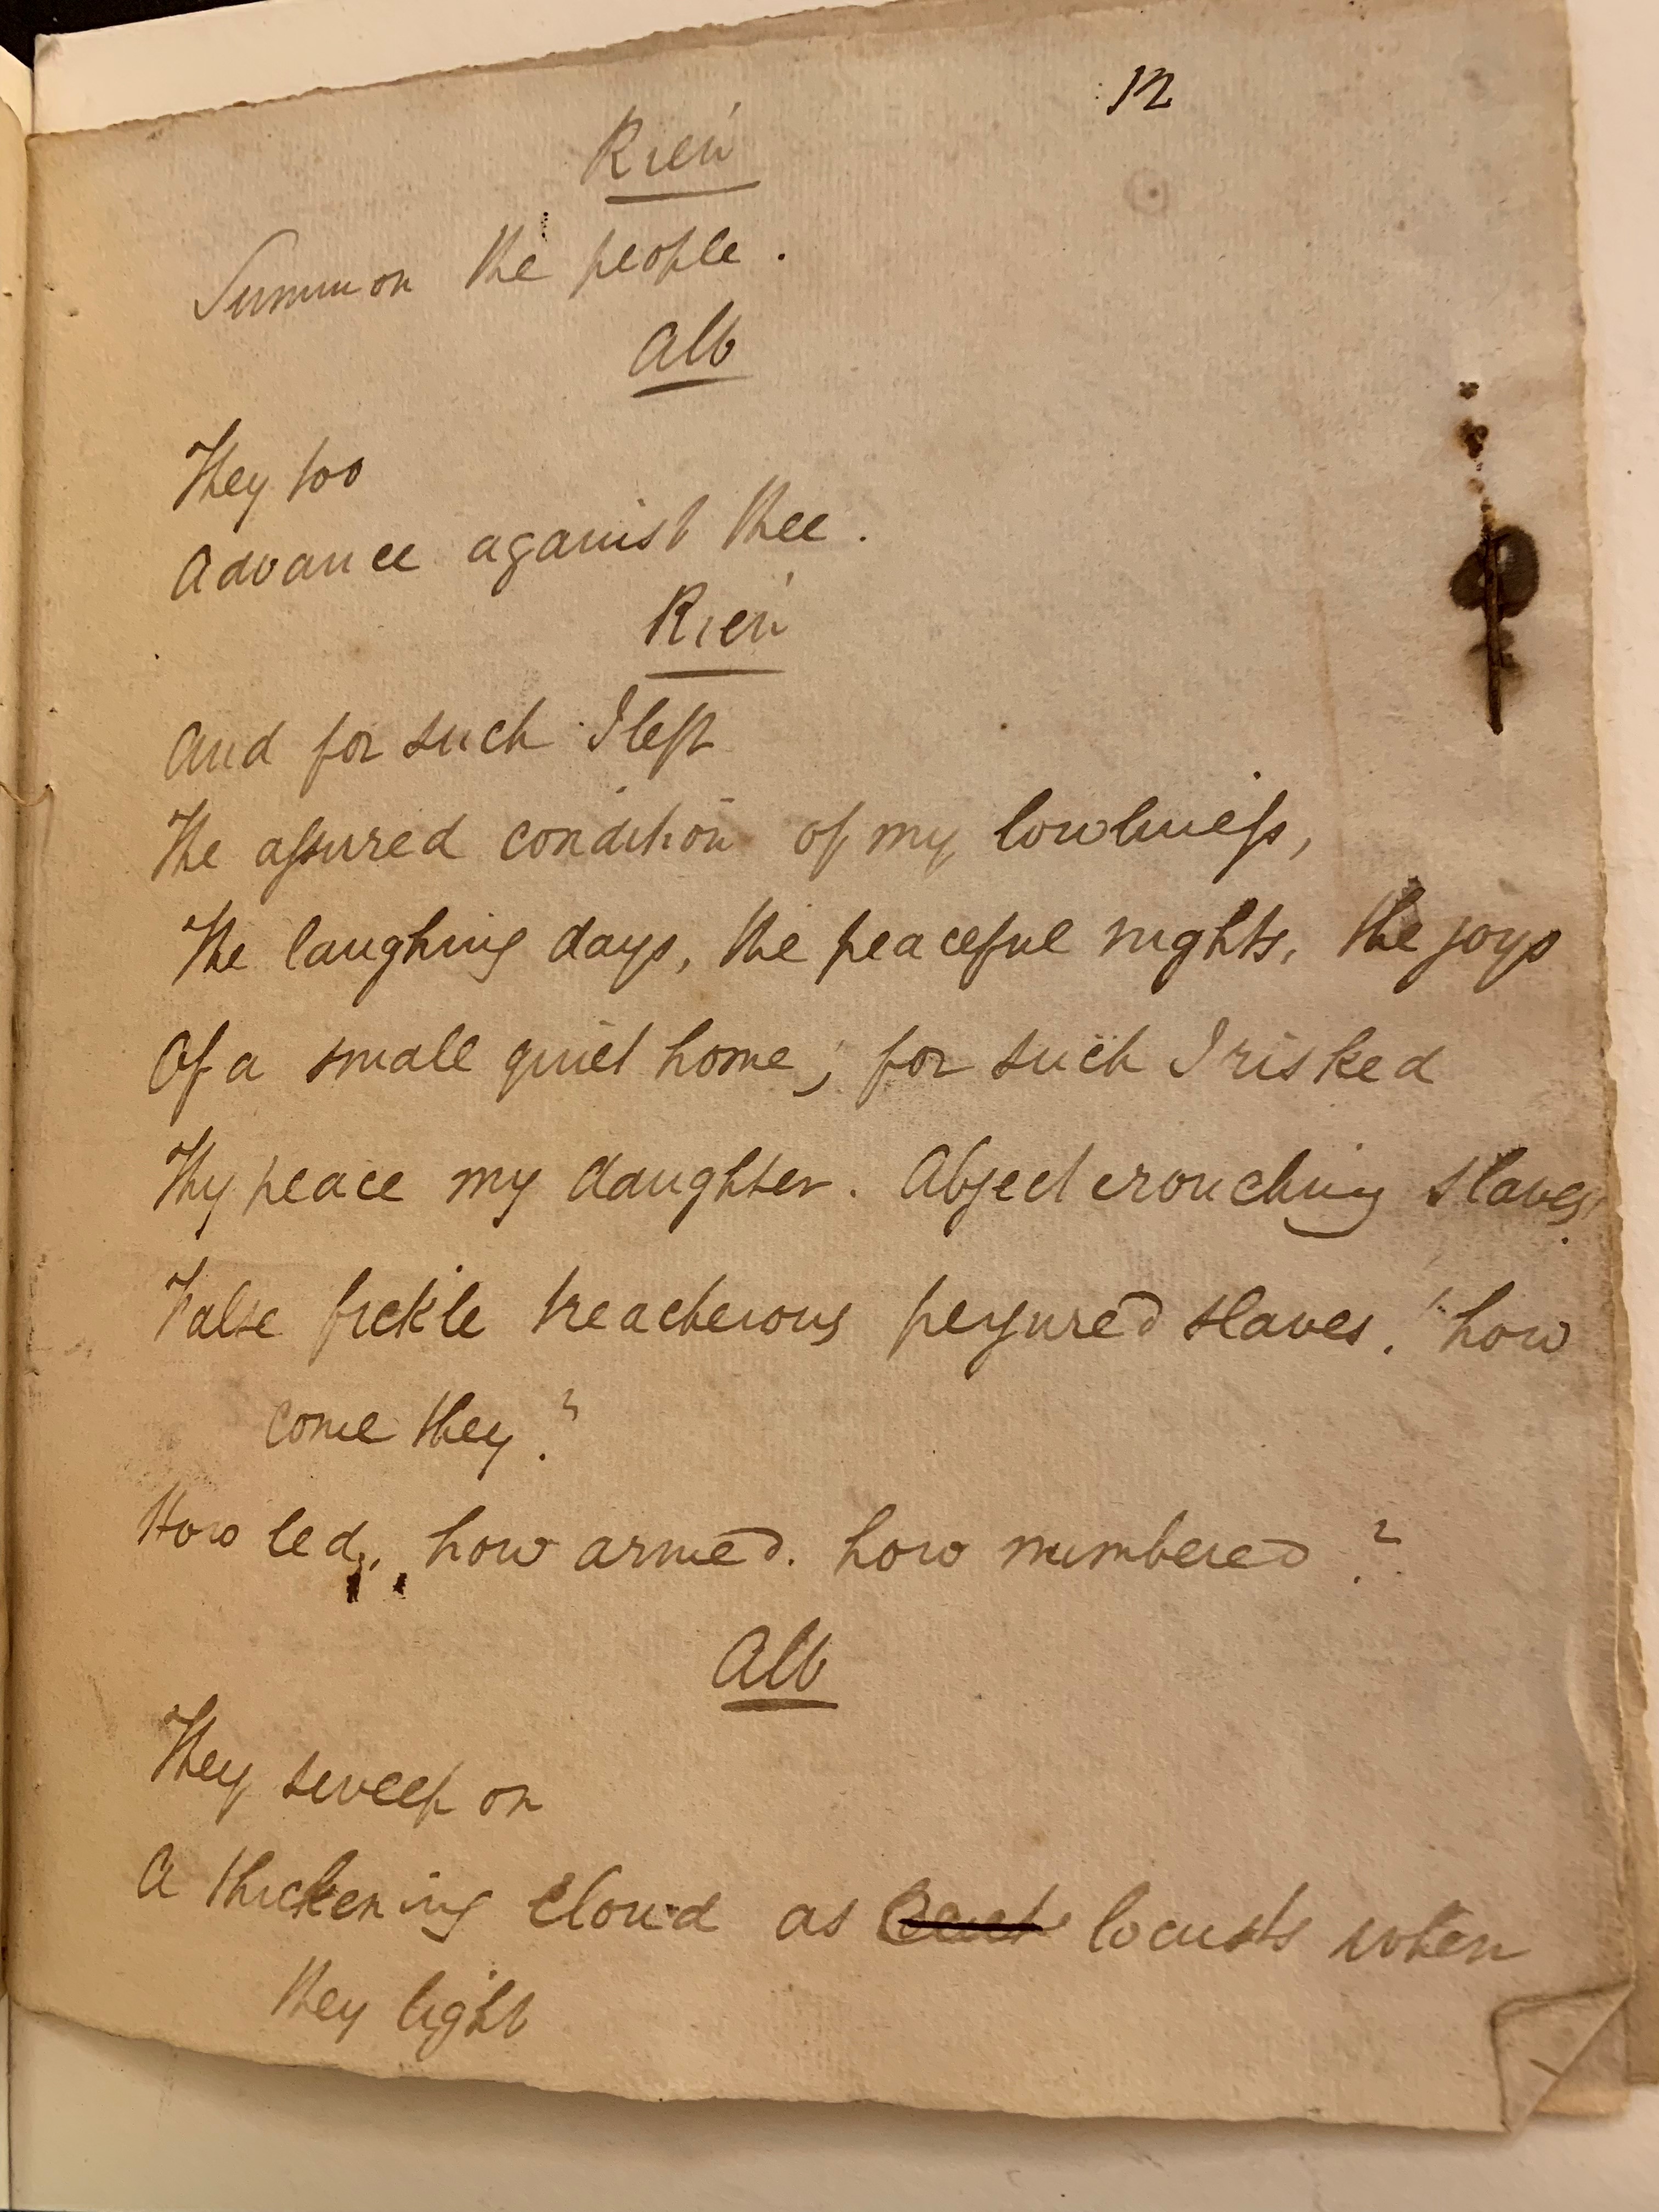 12
Rien
Summon the people.
Alb
They too
Advance against thee.
Rien
And for such I left
The assured condition of my lowliness,
The laughing days, the peaceful nights, the joys
Of a small quiet home; for such I risked
Thy peace my daughter. Abject crouching slaves!
False fickle treacherous perjured slaves! how
come they?
How led, how armed. how numbered?
Alb
They sweep on
A thickening cloud as locusts when
they light